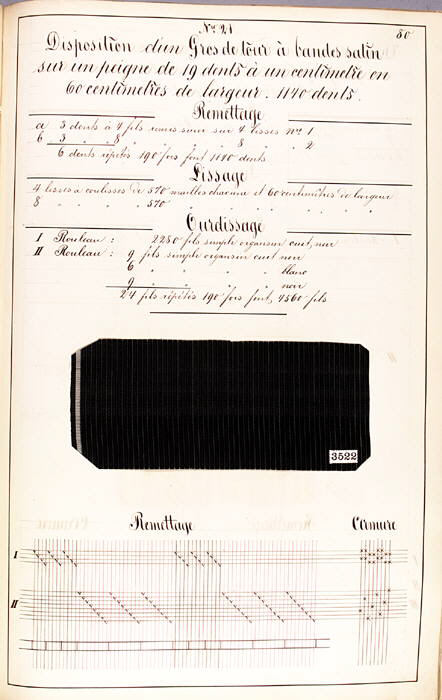 No. 21
80
Disposition d'un Gros de tour à bandes satin
sur un peigne de 19 dents à un centimètre en
60 centimètres de largeur. 1140 dents.
Remettage
a 3 dents à 4 fils remis suivi sur 4 lisses No. 1
b 3 " 8 " " " " 8 " " 2
6 dents répétés 190 fois font 1140 dents
Lissage
4 lisses à coulisses de 570 mailles chacune et 60 centimètres de largeur
8 " " " 570 " " " " " "
Ourdissage
I Rouleau : 2280 fils simple organsin cuit, noir
II Rouleau : 9 fils simple organsin cuit noir
6 " " " " blanc
9 " " " " noir
24 fils répétés 190 fois font, 4560 fils
3522
Remettage
Armure
I
II